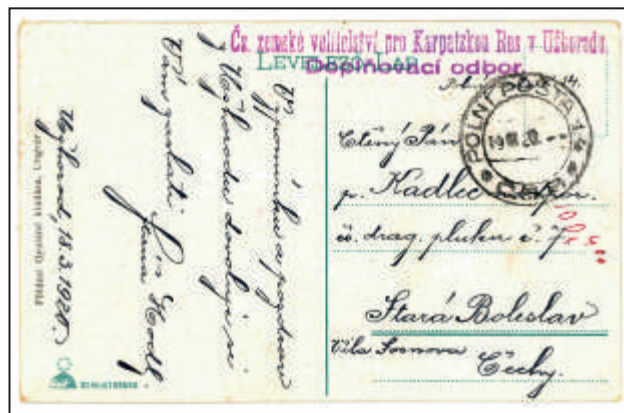 Čs. zemské velitelství pro Karpatskou Rus v Užhorodě.
LEVELEZŐ-LAP
Doplňovací odbor.
POLNÍ POŠTA 14
19 III 20
ČSP
Ctěný Pán
p. Kadlec
čs. drag. pluku č. 7
Stará Boleslav
Vila
Čechy.
Vzpomínku a pozdrav
z Užhorodu dovoluji si
Vám zaslati
Užhorod, 18.3.1920.
Földesi Gyuláné kiadása, Ungvár